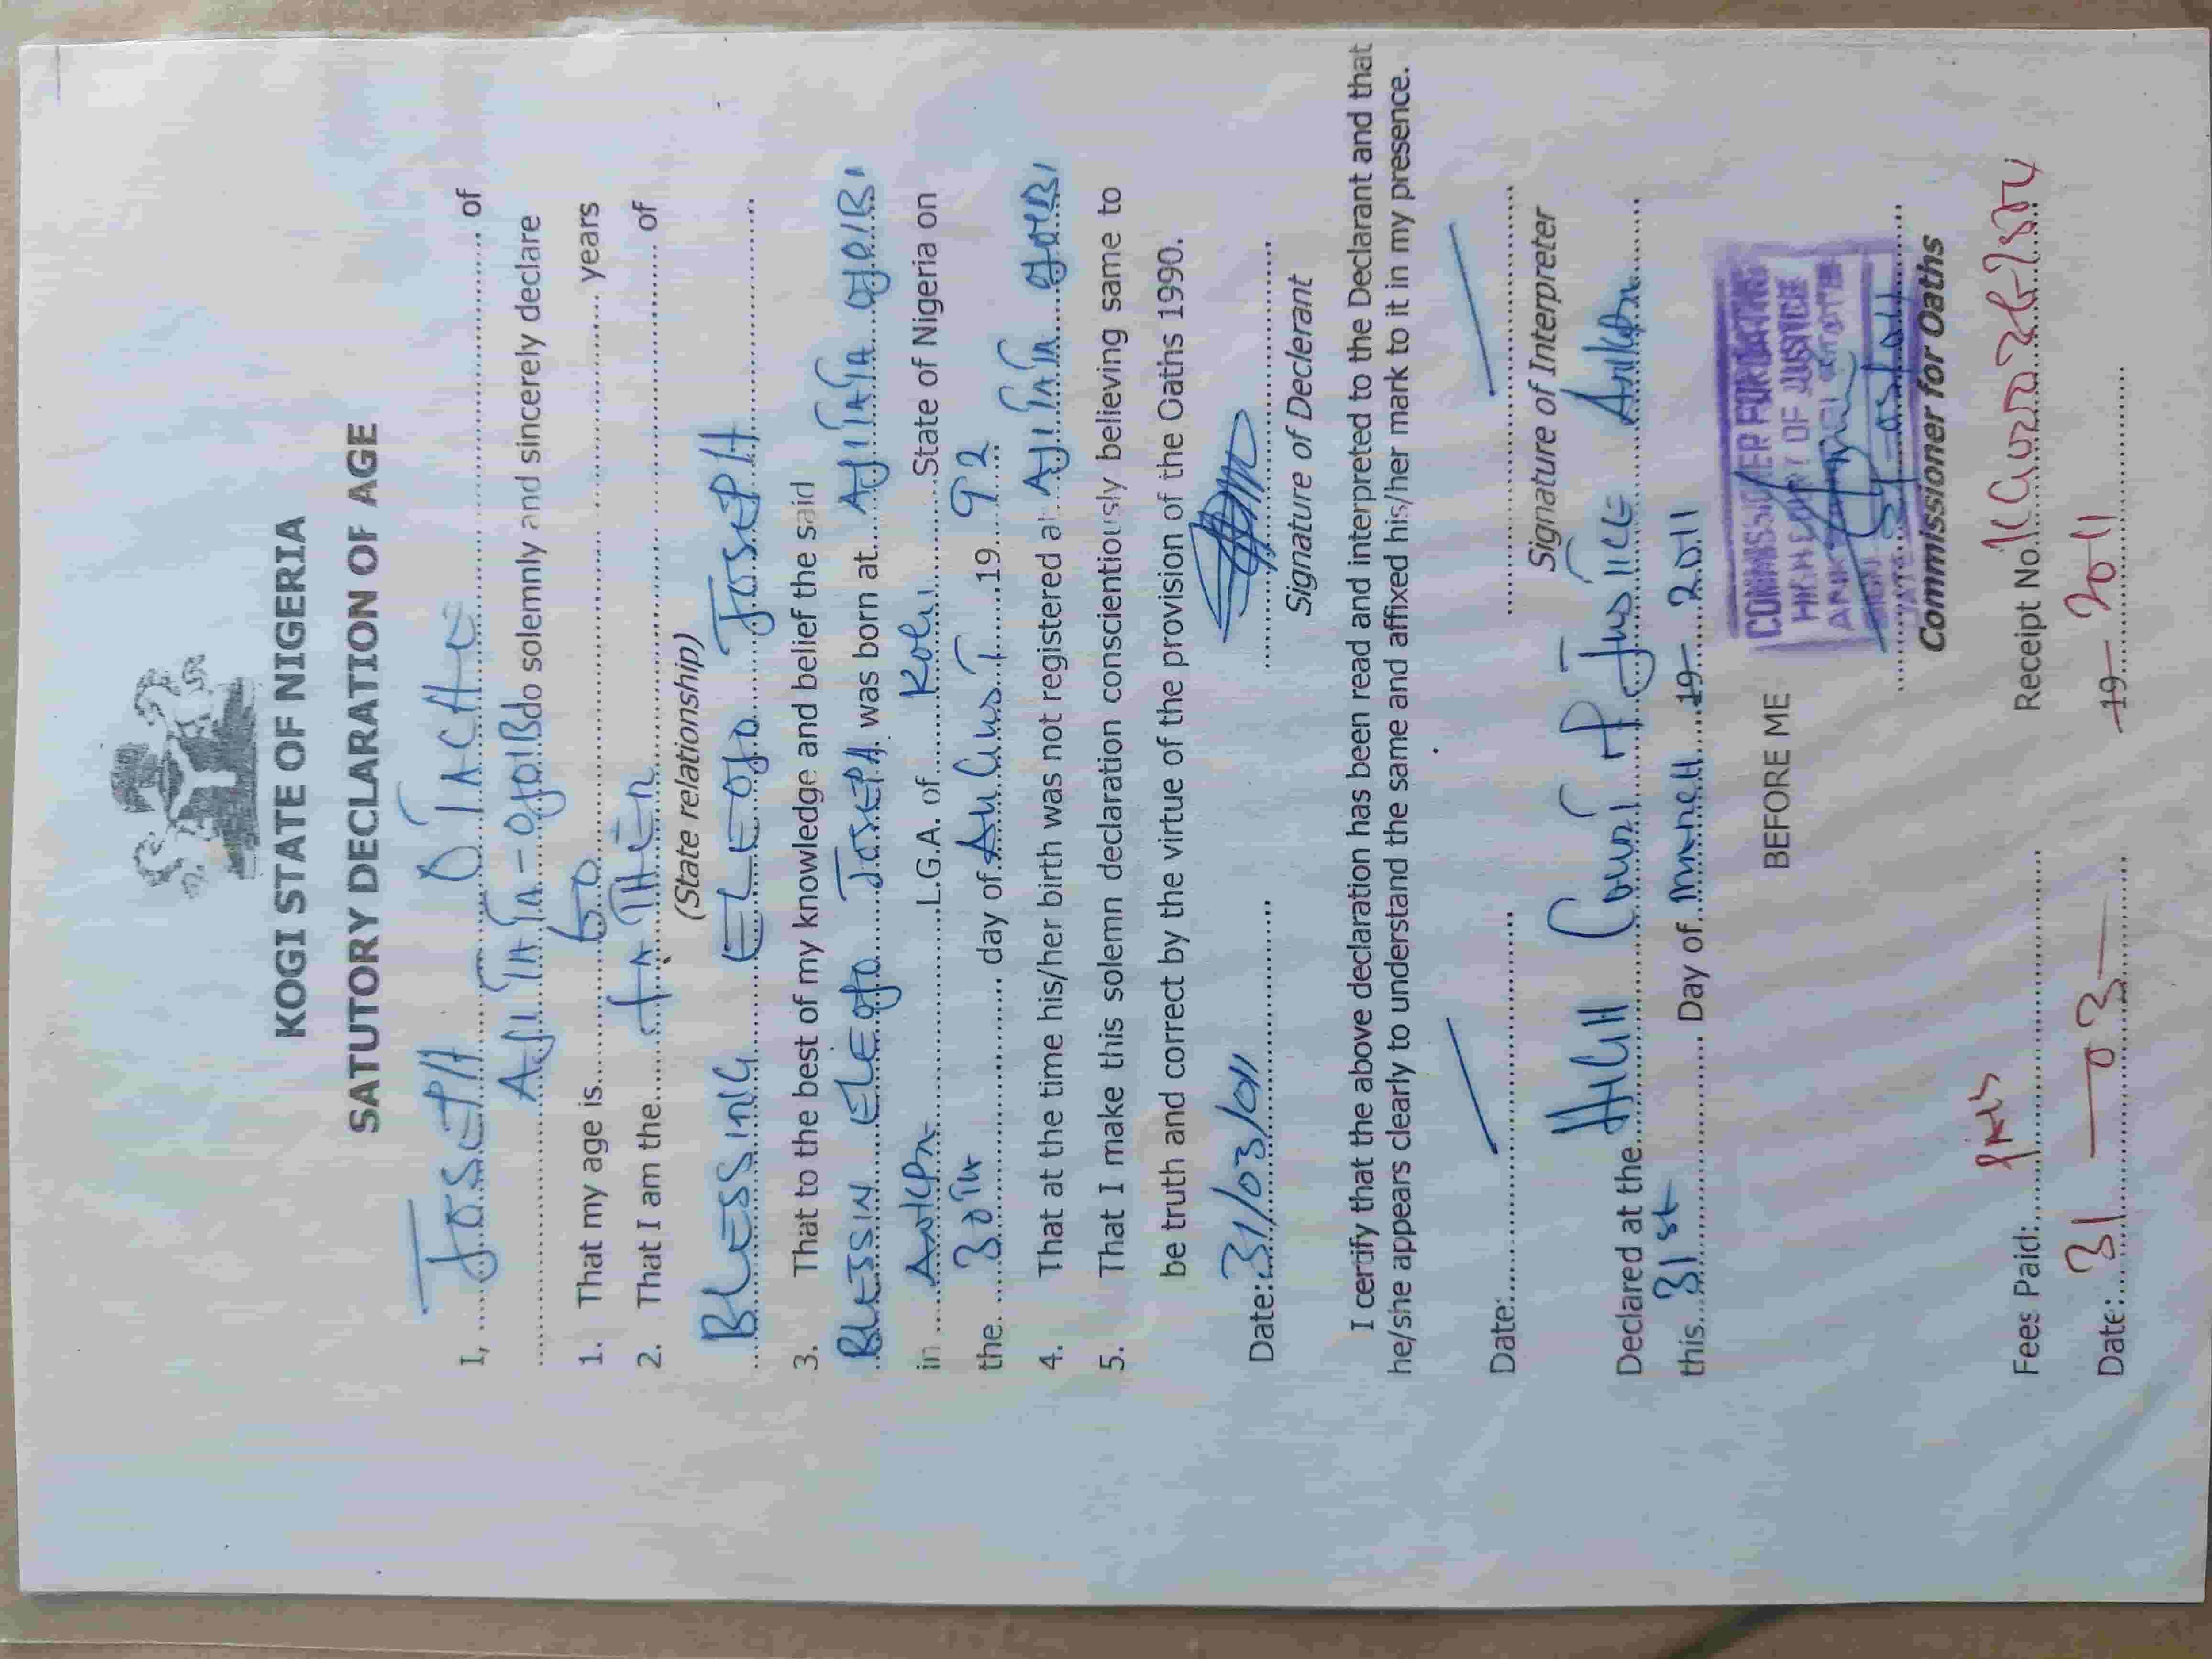 KOGI STATE OF NIGERIA
SATUTORY DECLARATION OF AGE
I, JOSEPH OTACHE of
AJITATA-OJOIB do solemnly and sincerely declare
1. That my age is 60 years
2. That I am the FATHER of
(State relationship)
BLESSING ELEOJO JOSEPH
3. That to the best of my knowledge and belief the said
BLESSIN ELEOJO JOSEPH was born at AJITATA OJOIBI
in ANKPA L.G.A. of KOGI State of Nigeria on
the 30TH day of AUGUST 19 92
4. That at the time his/her birth was not registered at AJITATA OJOIBI
5. That I make this solemn declaration conscientiously believing same to
be truth and correct by the virtue of the provision of the Oaths 1990.
Date: 31/03/011
Signature of Declerant
I certify that the above declaration has been read and interpreted to the Declarant and that
he/she appears clearly to understand the same and affixed his/her mark to it in my presence.
Date:
Signature of Interpreter
Declared at the HIGH COURT OF JUSTICE ANKPA
this 31st Day of MARCH 19 2011
BEFORE ME
COMMISSIONER FOR OATHS
HIGH COURT OF JUSTICE
SIGN
DATE
Commissioner for Oaths
Fees Paid:
Receipt No.
Date: 31 - 03 - 19 2011